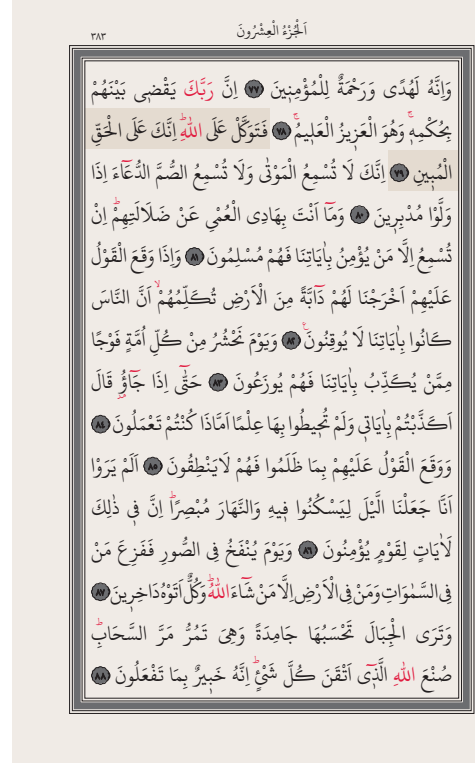 اَلْجُزْءُ الْعِشْرُونَ
٣٨٣
وَاِنَّهُ لَهُدًى وَرَحْمَةٌ لِلْمُؤْمِن۪ينَ ﴿٧٧﴾ اِنَّ رَبَّكَ يَقْض۪ى بَيْنَهُمْ
بِحُكْمِه۪ۚ وَهُوَ الْعَز۪يزُ الْعَل۪يمُۚ ﴿٧٨﴾ فَتَوَكَّلْ عَلَى اللّٰهِۜ اِنَّكَ عَلَى الْحَقِّ
الْمُب۪ينِ ﴿٧٩﴾ اِنَّكَ لَا تُسْمِعُ الْمَوْتٰى وَلَا تُسْمِعُ الصُّمَّ الدُّعَٓاءَ اِذَا
وَلَّوْا مُدْبِر۪ينَ ﴿٨٠﴾ وَمَٓا اَنْتَ بِهَادِى الْعُمْىِ عَنْ ضَلَالَتِهِمْۜ اِنْ
تُسْمِعُ اِلَّا مَنْ يُؤْمِنُ بِاٰيَاتِنَا فَهُمْ مُسْلِمُونَ ﴿٨١﴾ وَاِذَا وَقَعَ الْقَوْلُ
عَلَيْهِمْ اَخْرَجْنَا لَهُمْ دَٓابَّةً مِنَ الْاَرْضِ تُكَلِّمُهُمْۙ اَنَّ النَّاسَ
كَانُوا بِاٰيَاتِنَا لَا يُوقِنُونَ۟ ﴿٨٢﴾ وَيَوْمَ نَحْشُرُ مِنْ كُلِّ اُمَّةٍ فَوْجًا
مِمَّنْ يُكَذِّبُ بِاٰيَاتِنَا فَهُمْ يُوزَعُونَ ﴿٨٣﴾ حَتّٰٓى اِذَا جَٓاؤُ۫ قَالَ
اَكَذَّبْتُمْ بِاٰيَات۪ى وَلَمْ تُح۪يطُوا بِهَا عِلْمًا اَمَّاذَا كُنْتُمْ تَعْمَلُونَ ﴿٨٤﴾
وَوَقَعَ الْقَوْلُ عَلَيْهِمْ بِمَا ظَلَمُوا فَهُمْ لَا يَنْطِقُونَ ﴿٨٥﴾ اَلَمْ يَرَوْا
اَنَّا جَعَلْنَا الَّيْلَ لِيَسْكُنُوا ف۪يهِ وَالنَّهَارَ مُبْصِرًاۜ اِنَّ ف۪ى ذٰلِكَ
لَاٰيَاتٍ لِقَوْمٍ يُؤْمِنُونَ ﴿٨٦﴾ وَيَوْمَ يُنْفَخُ فِى الصُّورِ فَفَزِعَ مَنْ
فِى السَّمٰوَاتِ وَمَنْ فِى الْاَرْضِ اِلَّا مَنْ شَٓاءَ اللّٰهُۜ وَكُلٌّ اَتَوْهُ دَاخِر۪ينَ ﴿٨٧﴾
وَتَرَى الْجِبَالَ تَحْسَبُهَا جَامِدَةً وَهِىَ تَمُرُّ مَرَّ السَّحَابِۜ
صُنْعَ اللّٰهِ الَّذ۪ٓى اَتْقَنَ كُلَّ شَىْءٍۜ اِنَّهُ خَب۪يرٌ بِمَا تَفْعَلُونَ ﴿٨٨﴾